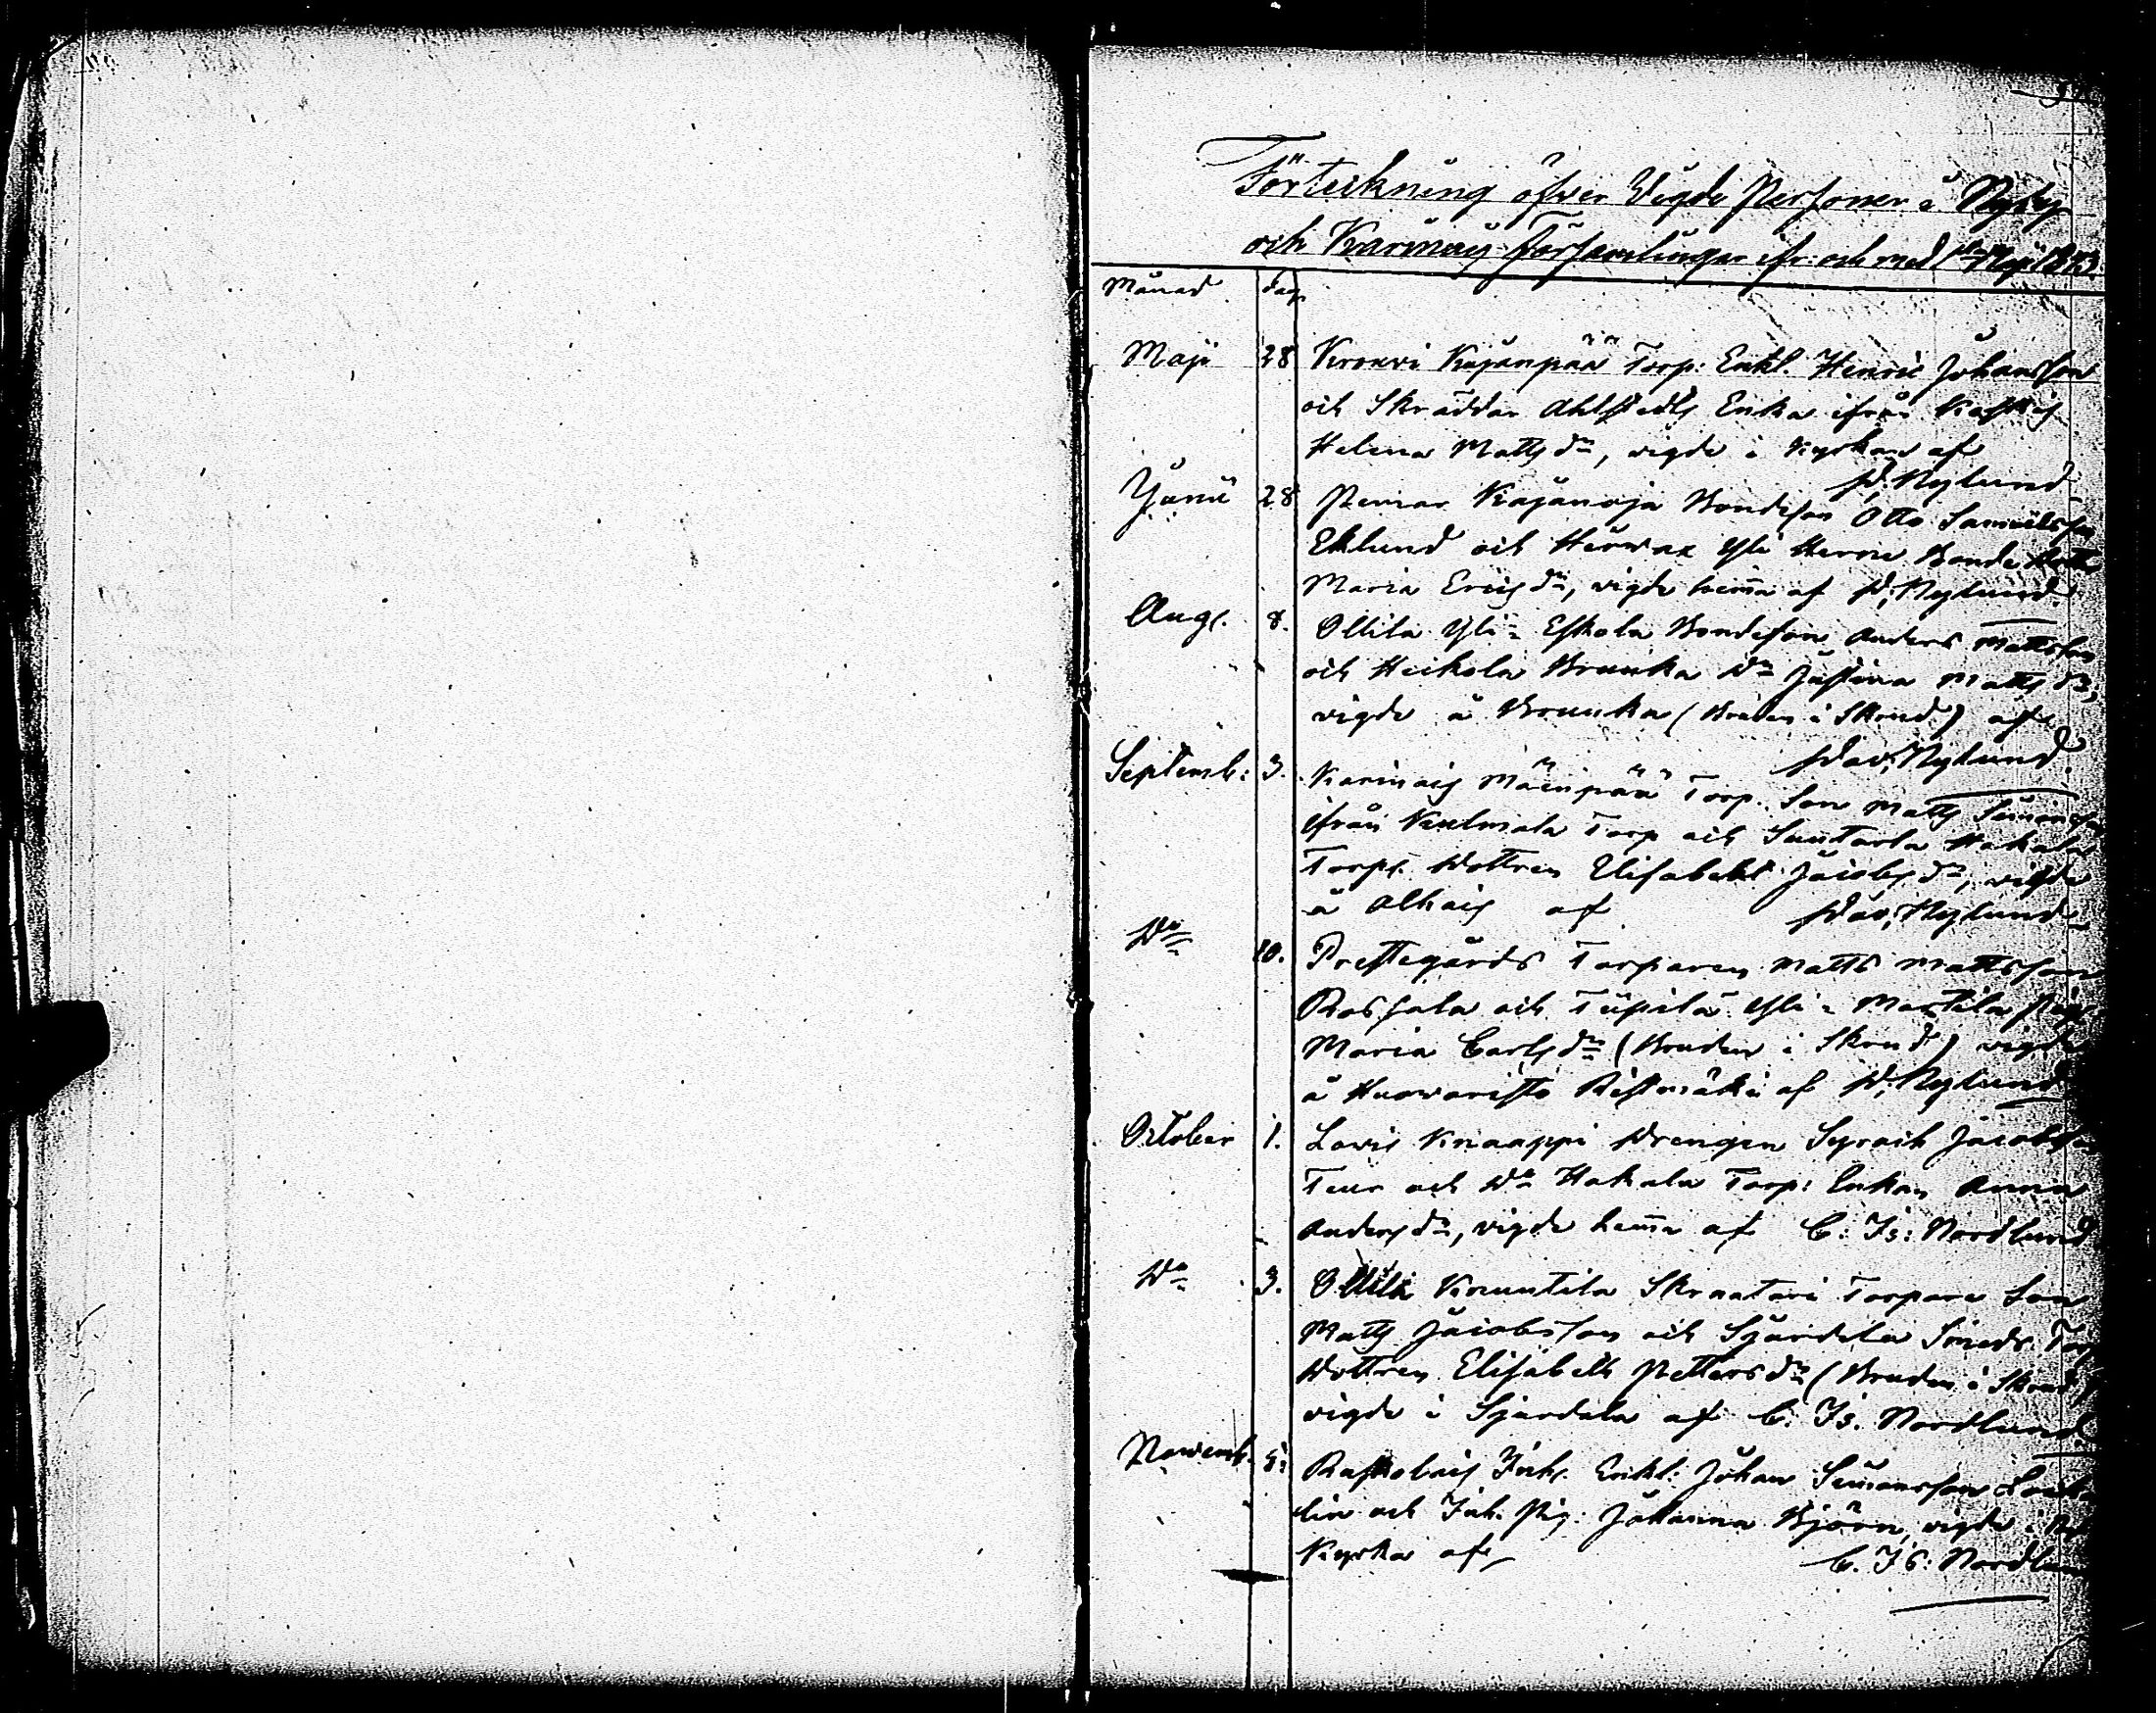 Förteckning öfver Vigde Personer i Nykyr
och Karinais Församlingar ifr: och med 1 Maji 1873
Månad dag
Maji 28 Krouvi Kajanpää Torp: Enkl. Henric Johansson
och Skräddar Ahlstedts Enka ifrån
Helena Matts dr, vigde i Kyrkan af
D. Nylund
Junii 28 Kajanoja Bondeson Otto Samuelsson
Eklund och Yli Bonde
Maria Erics dr, vigde hema af D. Nylund.
Aug. 8. Ollila Yli-Eskola Bondeson Anders Mattsson
och Heikola Brunka Dr Justina Matts dr,
vigde å Brunka (Bruden i Skrud) af
Dav. Nylund.
Septemb: 3. Karinais Mäenpää Torp. Son Matts Simonsson
ifrån Kulmala Torp och Suutarla Hakala
Torps Dottren Elisabeth Jacobs dr, vigde
å Alhais af Dav. Nylund
Do 10. Prestegårds Torparen Matts Mattsson
Rossala och Tüpilä Yli-Marttila Pig.
Maria Carls dr (Bruden i Skrud) vigde
å Huovaristo Ristmäki af D. Nylund
October 1. Lavis Knaappi Drengen Syrach Jacobsson
Teur och Do Hakala Torp: Enkan Anna
Anders dr, vigde hema af C: Is: Nordlund
Do 3. Ollila Knuutila Skraatari Torpare Son
Matts Jacobsson och Sjärdela Smeds Torp
Dottren Elisabeth Petters dr (Bruden i Skrud)
vigde i Sjärdela af C. Is. Nordlund.
Novemb. Inh. Enkl: Johan Simonsson
lin och Inh. Pig: Johanna Björn, vigde i
Kyrka af C. Is: Nordlun